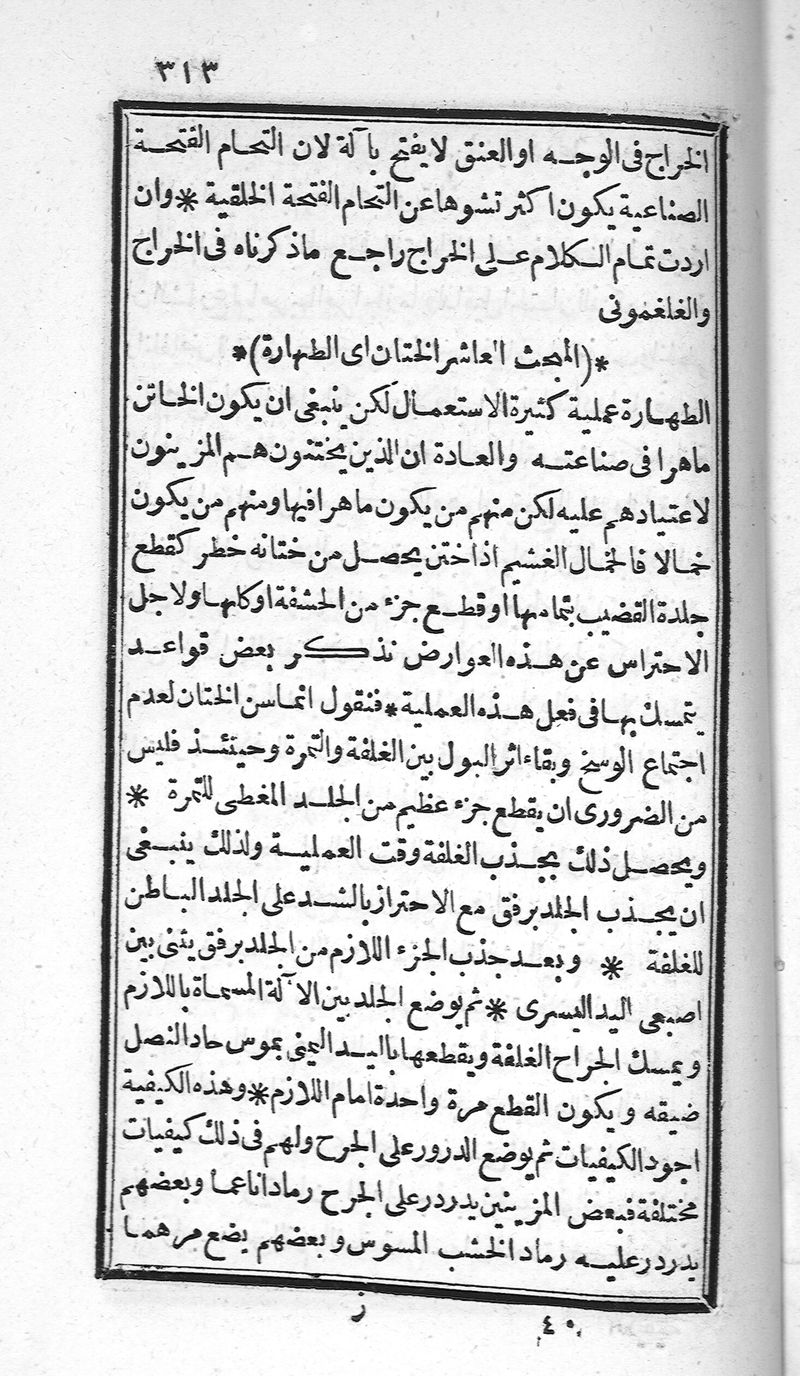 ٣١٣
الخراج فى الوجه او العنق لا يفتح بآلة لان التحام الفتحة
الصناعية يكون اكثر تشوها عن التحام الفتحة الخلقية * وان
اردت تمام الكلام على الخراج راجع ماذكرناه فى الخراج
والفلغمونى
*(المبحث العاشر الختان اى الطهارة)*
الطهارة عملية كثيرة الاستعمال لكن ينبغى ان يكون الخاتن
ماهرا فى صناعته والعادة ان الذين يختنون هم المزينون
لاعتيادهم عليه لكن منهم من يكون ماهرا فيها ومنهم من يكون
خمالا فالخمال الغشيم اذا ختن يحصل من ختانه خطر كقطع
جلدة القضيب بتمامها او قطع جزء من الحشفة او كلها ولاجل
الاحتراس عن هذه العوارض نذكر بعض قواعد
يتمسك بها فى فعل هذه العملية * فنقول انما سن الختان لعدم
اجتماع الوسخ وبقاء اثر البول بين الغلفة والتمرة وحينئذ فليس
من الضرورى ان يقطع جزء عظيم من الجلد المغطى للتمرة *
ويحصل ذلك بجذب الغلفة وقت العملية ولذلك ينبغى
ان يجذب الجلد برفق مع الاحتراز بالشد على الجلد الباطن
للغلفة * وبعد جذب الجزء اللازم من الجلد برفق يثنى بين
اصبعى اليد اليسرى * ثم يوضع الجلد بين الآلة المسماة باللازم
ويمسك الجراح الغلفة ويقطعها باليد اليمنى بموس حاد النصل
ضيقه ويكون القطع مرة واحدة امام اللازم * وهذه الكيفية
اجود الكيفيات ثم يوضع الدرور على الجرح ولهم فى ذلك كيفيات
مختلفة فبعض المزينين يدردر على الجرح رمادا ناعما وبعضهم
يدردر عليه رماد الخشب المسوس وبعضهم يضع مرهما
٤٠ ز